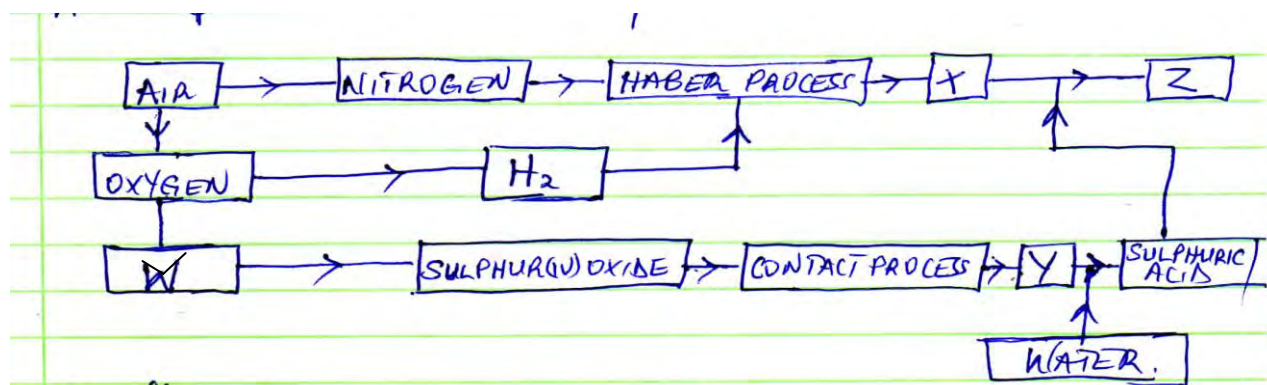 AIR
NITROGEN
HABER PROCESS
X
Z
OXYGEN
H₂
W
SULPHUR(IV) OXIDE
CONTACT PROCESS
Y
SULPHURIC
ACID
WATER.